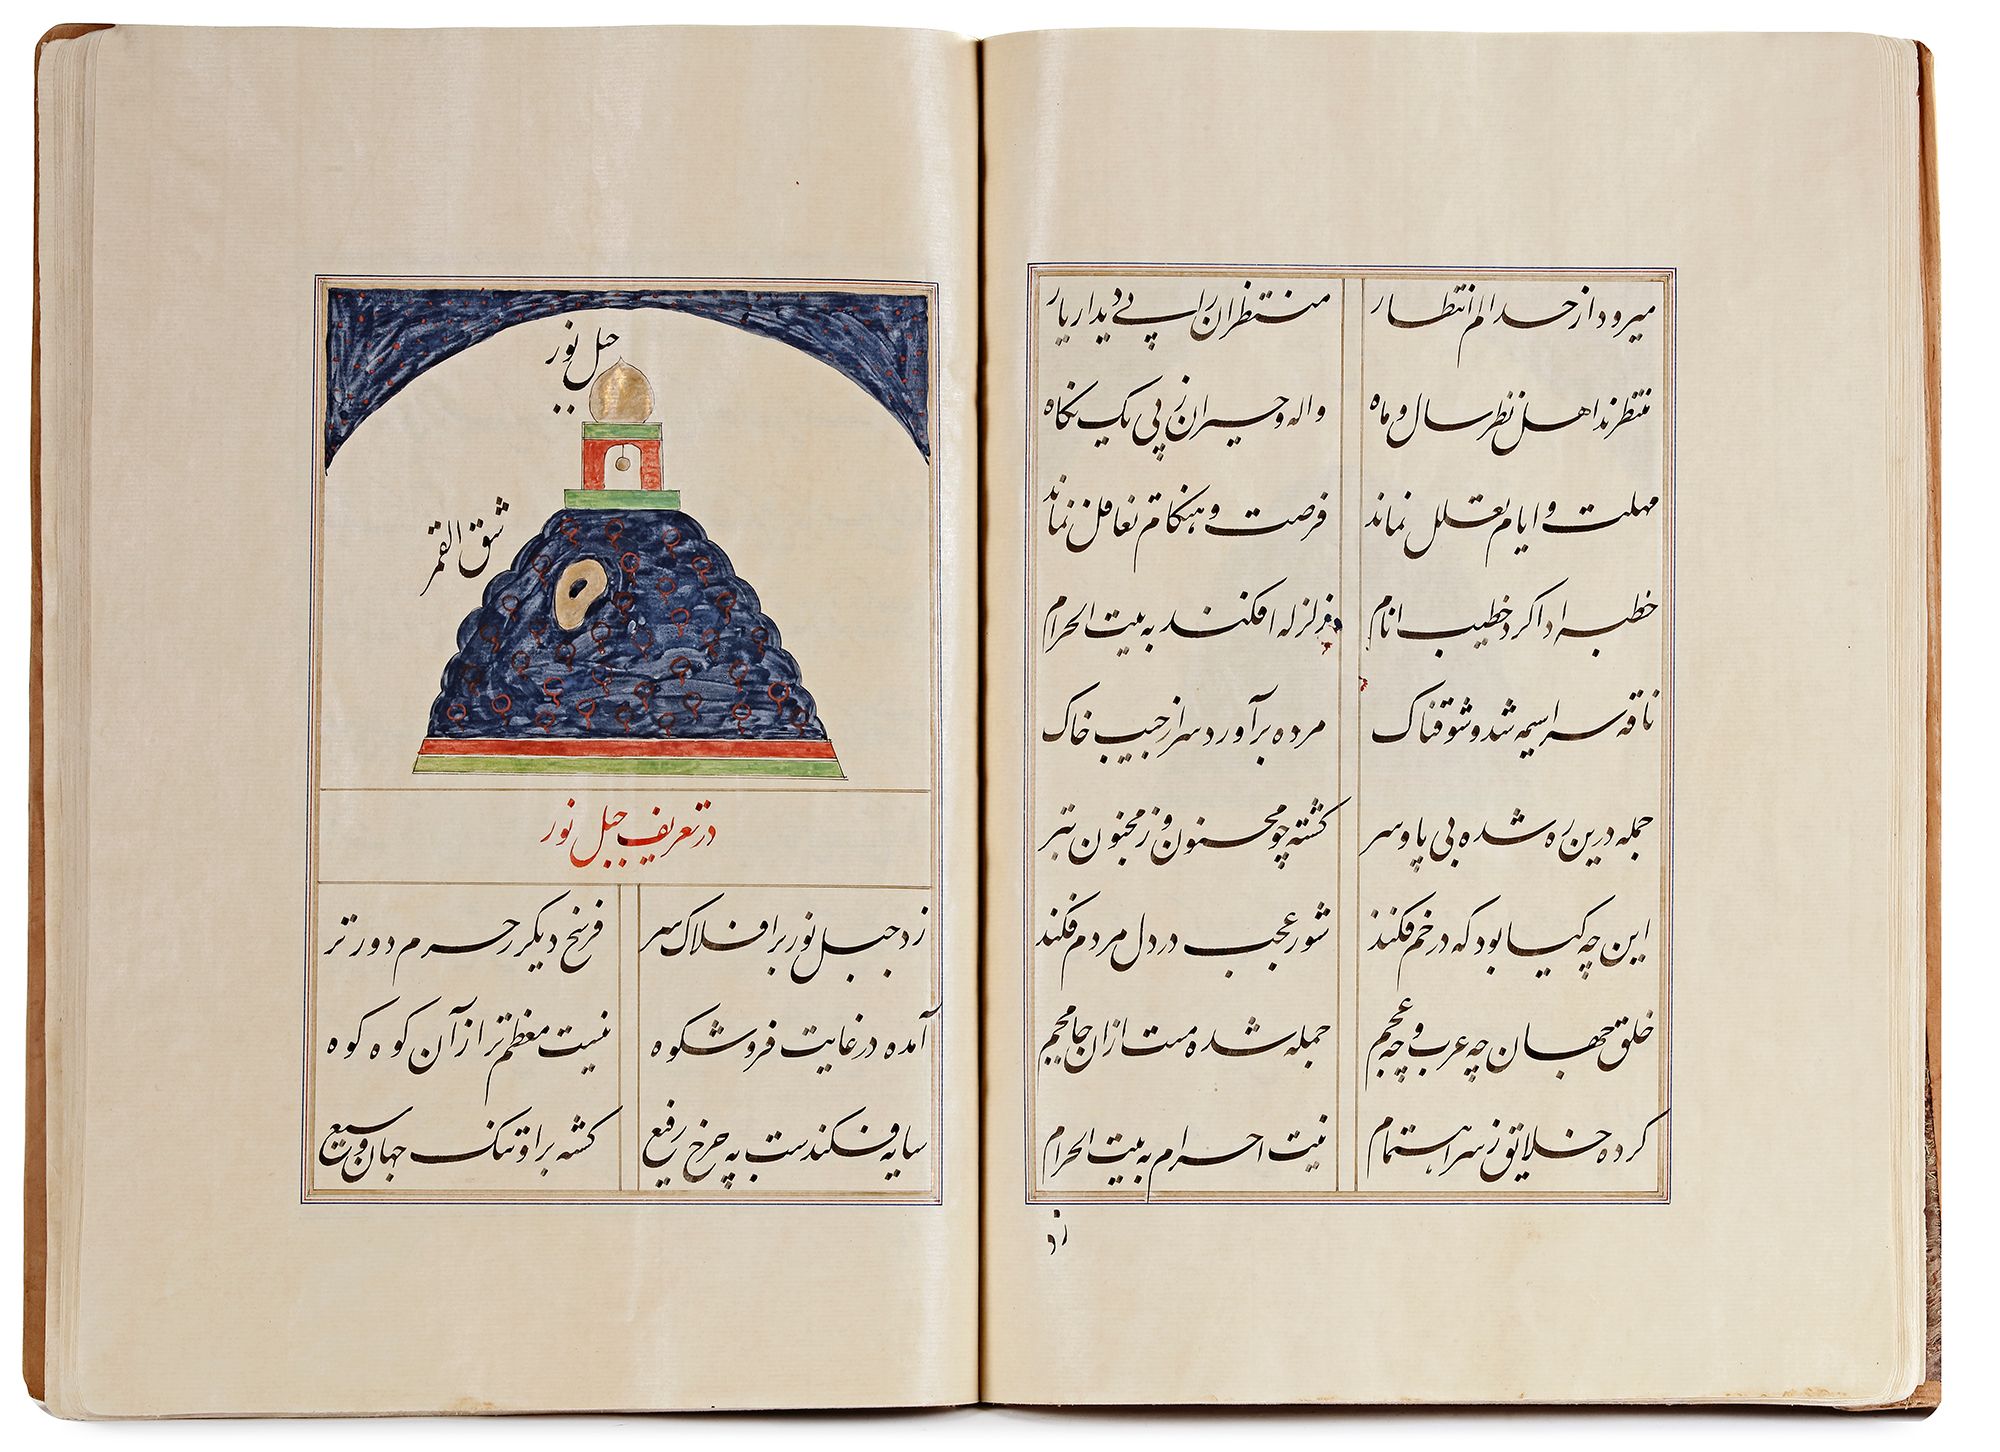 میرود از حد الم انتظار منتظران را پی دیدار یار
منتظرند اهل نظر سال و ماه واله و حیران ز پی یک نکاه
مهلت و ایام تعلل نماند فرصت و هنکام تغافل نماند
خطبه ادا کرد خطیب انام زلزله افکند به بیت الحرام
ناقه سراسیمه شد و شوقناک مرده برآورد سر از جیب خاک
جمله درین ره شده بی پا و سر کشته چو مجنون و ز مجنون بتر
این چه کیا بود که در خم فکند شور عجب در دل مردم فکند
خلق جهان چه عرب و چه عجم جمله شده مست ازان جام جم
کرده خلایق ز سر اهتمام نیت احرام به بیت الحرام
زد
جبل نور
شق القمر
در تعریف جبل نور
زد جبل نور بر افلاک سر فرسخ دیکر ز حرم دورتر
آمده در غایت فر و شکوه نیست معظم تر از آن کوه کوه
سایه فکندست به چرخ رفیع کشته بر او تنک جهان وسیع